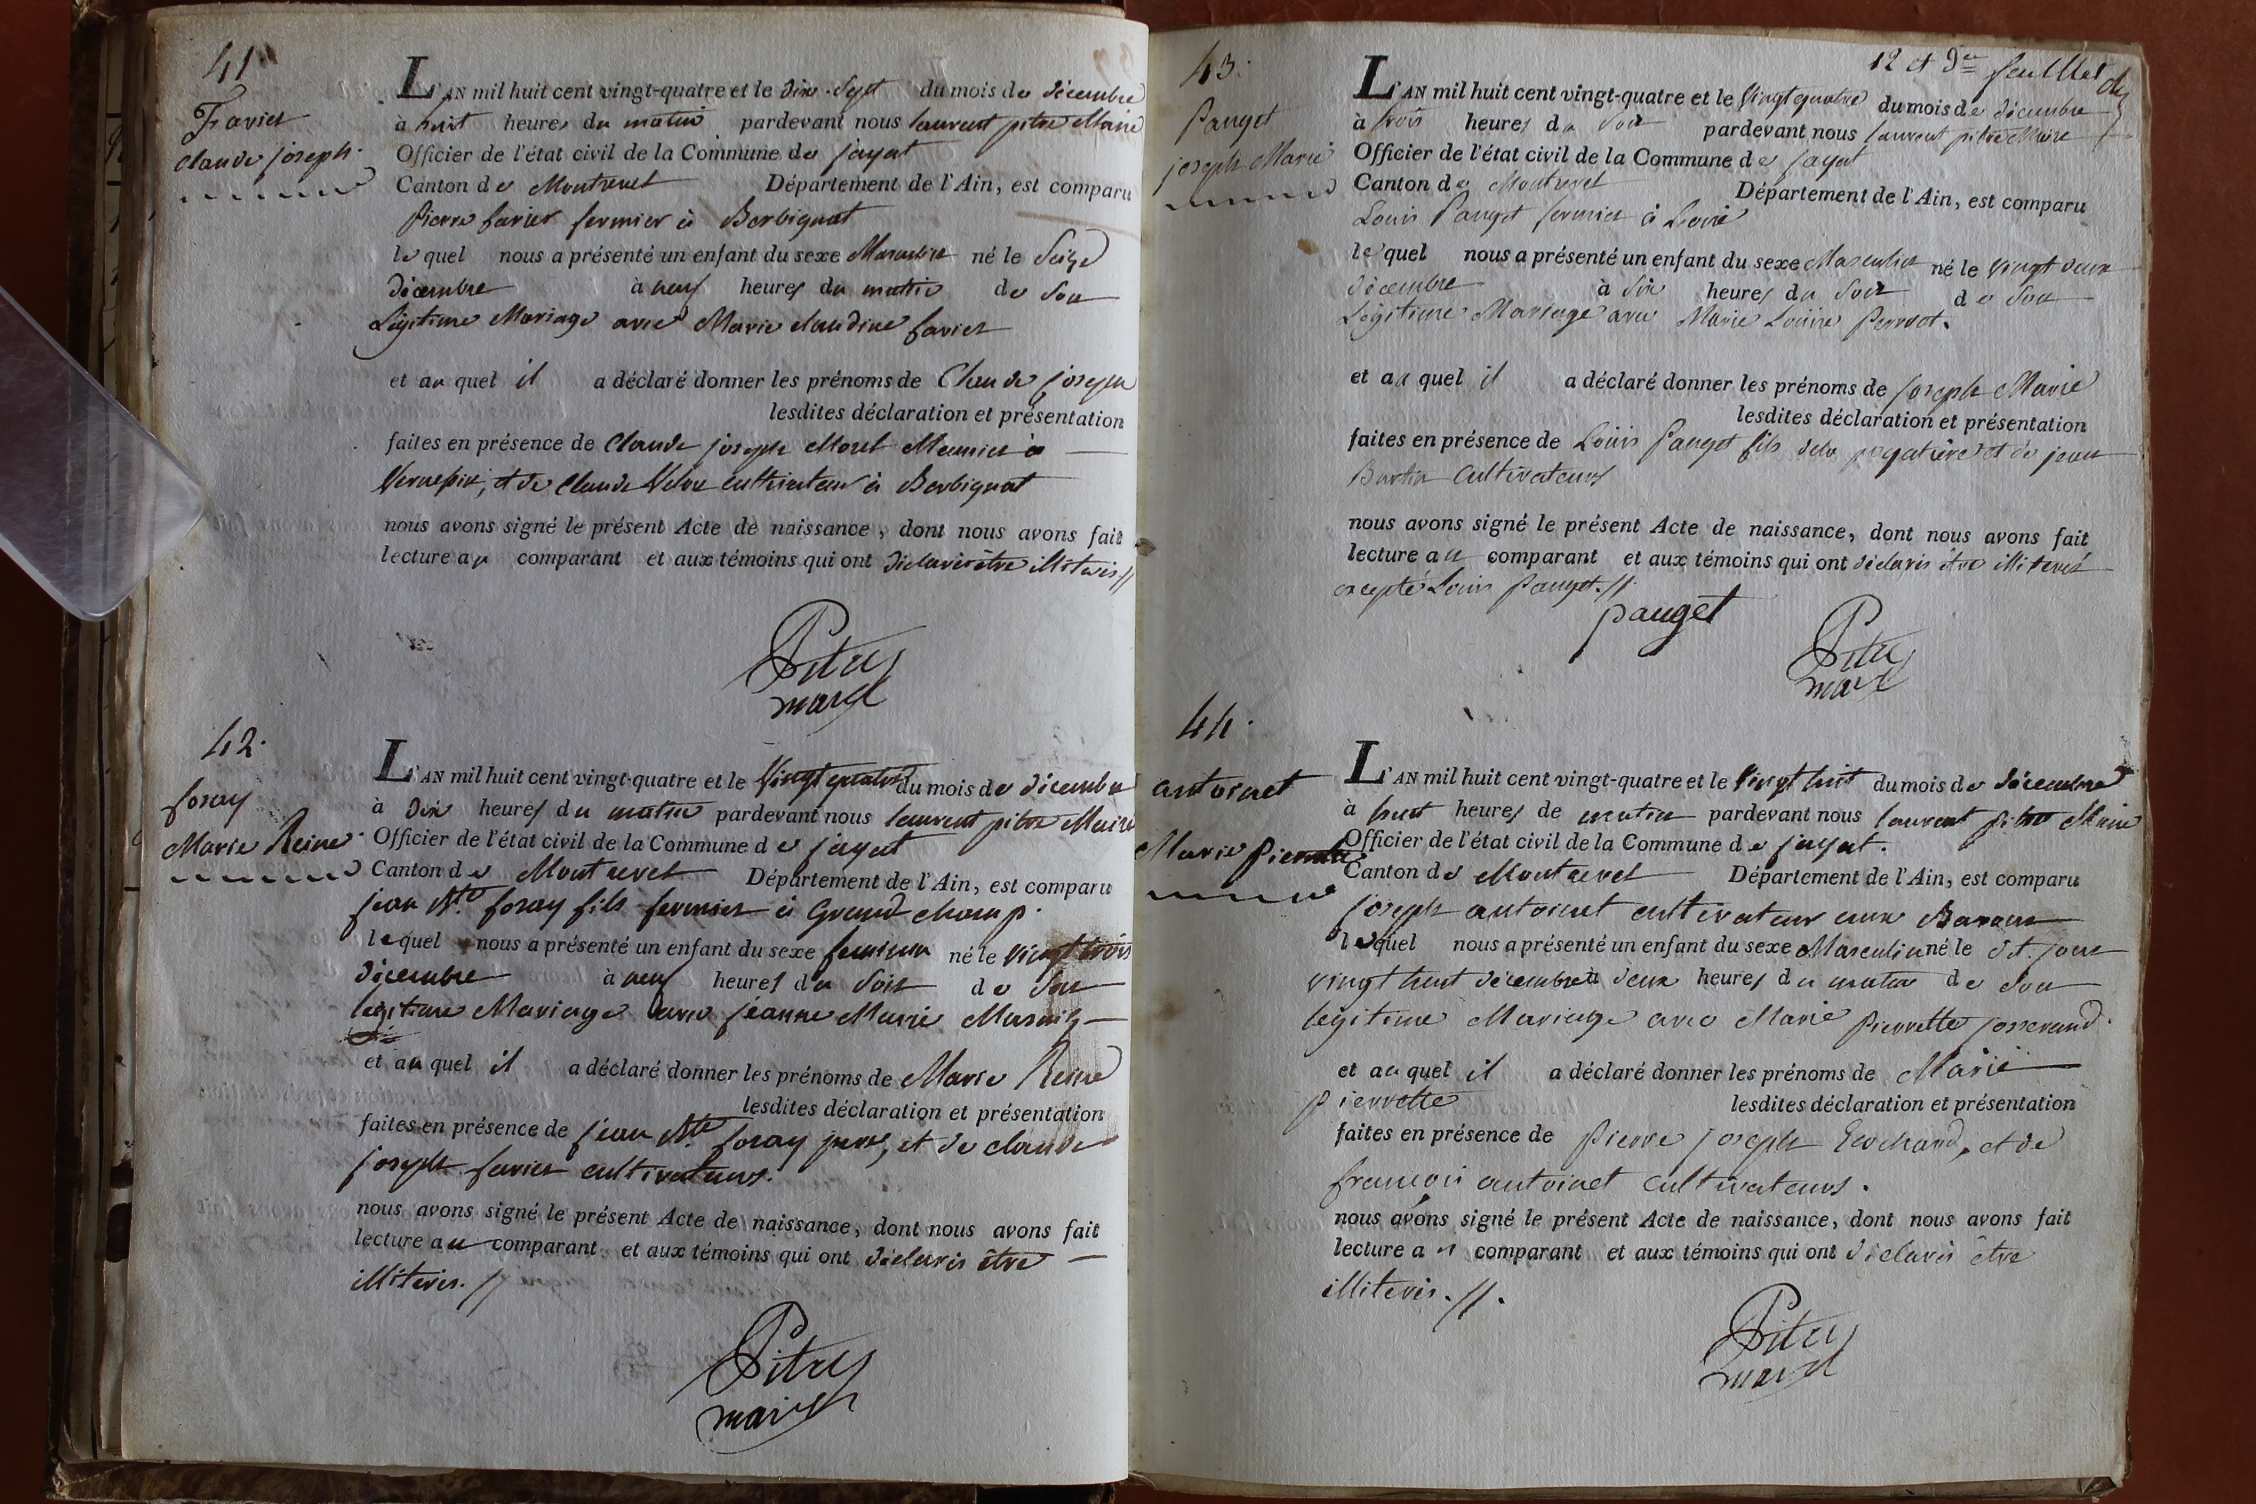 41
Favier
Claude joseph.
L'AN mil huit cent vingt-quatre et le dix-Sept du mois de décembre
à huit heures du matin pardevant nous laurent pitre Maire
Officier de l'état civil de la Commune de jayat
Canton de Montrevel Département de l'Ain, est comparu
Pierre favier fermier à Berbignat
lequel nous a présenté un enfant du sexe Masculin né le Seize
décembre à neuf heures du matin de Son
Légitime Mariage avec Marie claudine favier
et au quel il a déclaré donner les prénoms de Claude joseph
lesdites déclaration et présentation
faites en présence de Claude joseph Morel Meunier à
et de Claude cultivateur à Berbignat
nous avons signé le présent Acte de naissance, dont nous avons fait
lecture au comparant et aux témoins qui ont déclarés être illiterés //
Pitre
maire
42.
foray
Marie Reine.
L'AN mil huit cent vingt-quatre et le Vingt quatre du mois de décembre
à Dix heures du matin pardevant nous laurent pitre Maire
Officier de l'état civil de la Commune de jayat
Canton de Montrevel Département de l'Ain, est comparu
jean Mte. foray fils fermier à Grand champ.
lequel nous a présenté un enfant du sexe feminin né le Vingt trois
décembre à neuf heures du Soir de Son
legitime Mariage avec jéanne Marie
et au quel il a déclaré donner les prénoms de Marie Reine
lesdites déclaration et présentation
faites en présence de jean Mte foray pere, et de claude
joseph favier cultivateurs.
nous avons signé le présent Acte de naissance, dont nous avons fait
lecture au comparant et aux témoins qui ont déclarés être
illiterés. //
Pitre
maire
12 et Der feuillet
43.
Pauget
joseph Marie
L'AN mil huit cent vingt-quatre et le Vingt quatre du mois de décembre
à trois heures du Soir pardevant nous laurent pitre Maire
Officier de l'état civil de la Commune de jayat
Canton de Montrevel Département de l'Ain, est comparu
Louis Pauget fermier à
lequel nous a présenté un enfant du sexe Masculin né le Vingt deux
décembre à Six heures du Soir de Son
Légitime Mariage avec Marie Loüise Perret.
et au quel il a déclaré donner les prénoms de joseph Marie
lesdites déclaration et présentation
faites en présence de Loüis Pauget fils et de jean
cultivateurs
nous avons signé le présent Acte de naissance, dont nous avons fait
lecture au comparant et aux témoins qui ont déclarés être illiterés
excepté Louis Pauget. //
pauget
Pitre
maire
44.
antoinet
Marie Pierrette
L'AN mil huit cent vingt-quatre et le Vingt huit du mois de décembre
à huit heures de matin pardevant nous laurent pitre Maire
Officier de l'état civil de la Commune de jayat.
Canton de Montrevel Département de l'Ain, est comparu
joseph antoinet cultivateur aux
lequel nous a présenté un enfant du sexe Masculin né le dt. jour
vingt huit décembre à deux heures du matin de Son
legitime Mariage avec Marie Pierrette josserand.
et au quel il a déclaré donner les prénoms de Marie
pierrette lesdites déclaration et présentation
faites en présence de Pierre joseph et de
françois antoinet cultivateurs.
nous avons signé le présent Acte de naissance, dont nous avons fait
lecture au comparant et aux témoins qui ont déclarés être
illiterés. //.
Pitre
maire